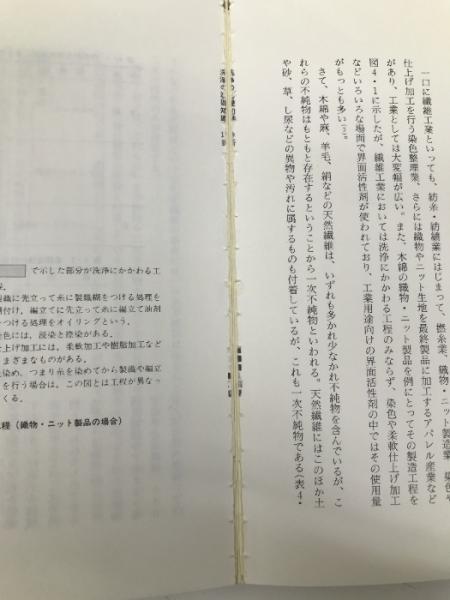 一口に繊維工業といっても、紡糸・紡績業にはじまって、撚糸業、織物・ニット製造業、染色や
仕上げ加工を行う染色整理業、さらには織物やニット生地を最終製品に加工するアパレル産業など
があり、工業としては大変幅が広い。また、木綿の織物・ニット製品を例にとってその製造工程を
図4・1に示したが、繊維工業においては洗浄にかかわる工程のみならず、染色や柔軟仕上げ加工
などいろいろな場面で界面活性剤が使われており、工業用途向けの界面活性剤の中ではその使用量
がもっとも多い(2)。
さて、木綿や麻、羊毛、絹などの天然繊維は、いずれも多かれ少なかれ不純物を含んでいるが、こ
れらの不純物はもともと存在するということから一次不純物といわれる。天然繊維にはこのほか土
や砂、草、し尿などの異物や汚れに属するものも付着しているが、これも一次不純物である(表4・
で示した部分が洗浄にかかわる工
製織に先立って糸に製織糊をつける処理を
糊付け，編立てに先立って糸に編立て油剤
をつける処理をオイリングという。
染色には，浸染と捺染がある。
仕上げ加工には，柔軟加工や樹脂加工など
さまざまなものがある。
先染め，つまり糸を染めてから製織や編立
を行う場合は，この図とは工程が異なっ
くる。
工程（織物・ニット製品の場合）